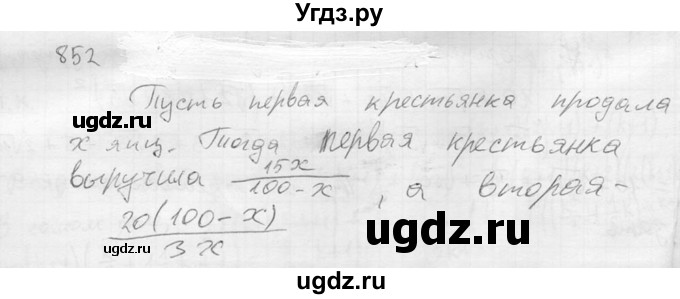 Угдз.ру
852
Пусть первая крестьянка продала
х яиц. Тогда первая крестьянка
выручила 15х/100-х, а вторая-
20(100-х)/3х
ugdz.ru
ugdz.ru
ugdz.ru
ugdz.ru
ugdz.ru